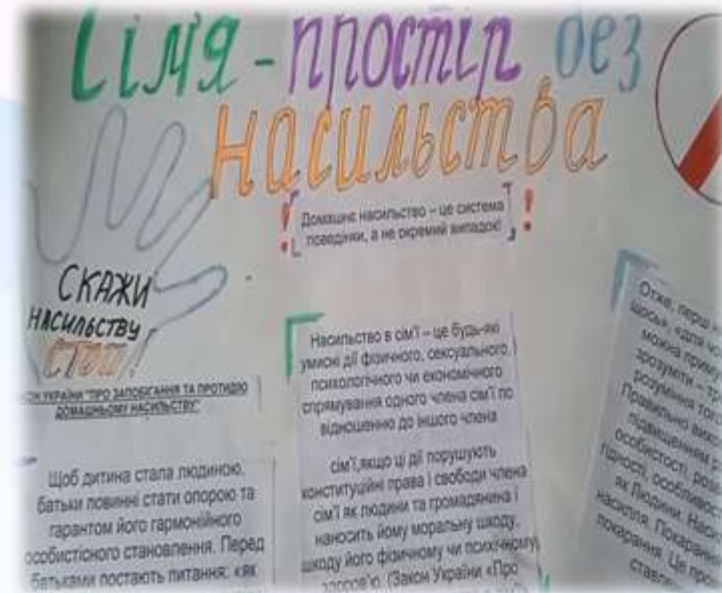 Сім'я - простір без
насильства
Домашнє насильство – це система
поведінки, а не окремий випадок!
СКАЖИ
НАСИЛЬСТВУ
СТОП!
ОН УКРАЇНИ "ПРО ЗАПОБІГАННЯ ТА ПРОТИДІЮ
ДОМАШНЬОМУ НАСИЛЬСТВУ"
Щоб дитина стала людиною,
батьки повинні стати опорою та
гарантом його гармонійного
особистісного становлення. Перед
батьками постають питання: «як
Насильство в сім'ї – це будь-які
умисні дії фізичного, сексуального,
психологічного чи економічного
спрямування одного члена сім'ї по
відношенню до іншого члена
сім'ї,якщо ці дії порушують
конституційні права і свободи члена
сім'ї як людини та громадянина і
наносить йому моральну шкоду,
шкоду його фізичному чи психічному
здоров'ю. (Закон України «Про
Отже, перш
щось», «для
можна
зрозуміти –
розуміння
Правильно
підвищенням
особистості,
гідності,
як Людини.
насилля.
покарання. Це